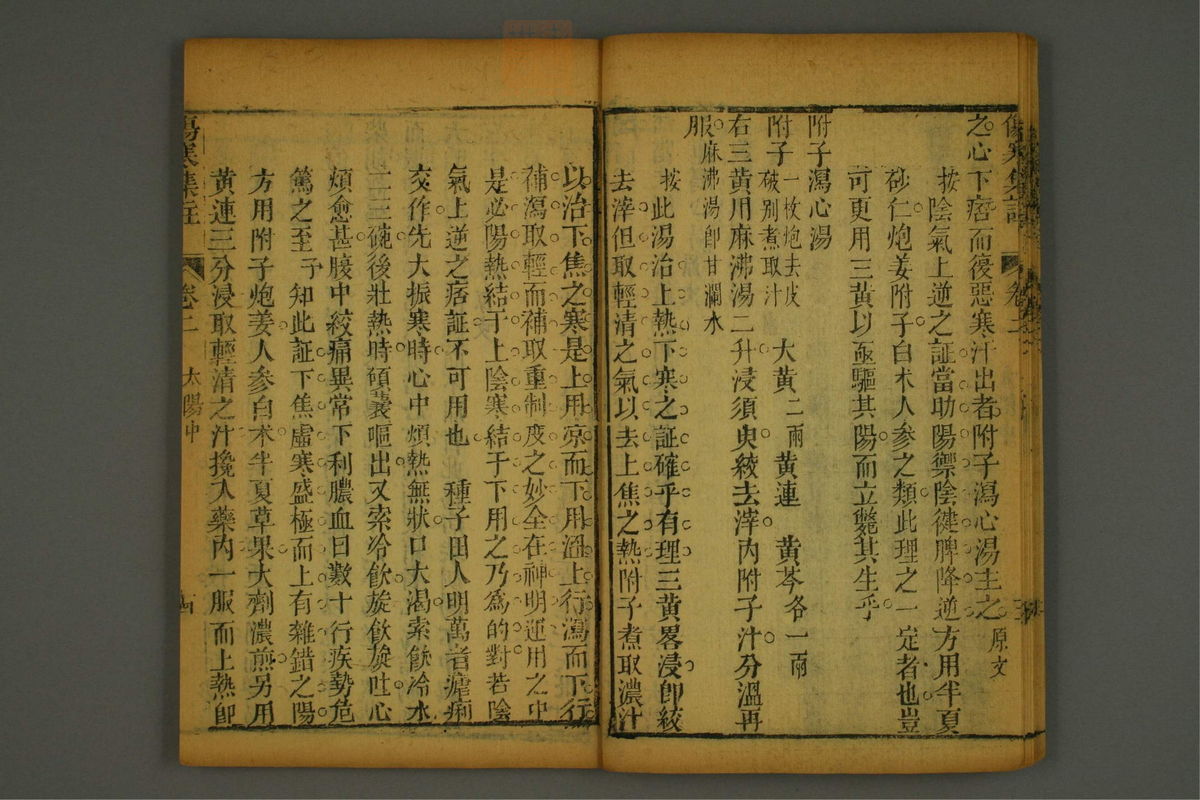 傷寒集註 卷二
之心下痞而復惡寒汁出者附子瀉心湯主之 原文
按陰氣上逆之証當助陽禦陰健脾降逆方用半夏
砂仁炮姜附子白朮人參之類此理之一定者也豈
可更用三黃以亟驅其陽而立斃其生乎
附子瀉心湯
附子 一枚炮去皮破别煮取汁 大黃 二兩 黃連 黃芩 各一兩
右三黃用麻沸湯二升浸須臾絞去滓內附子汁分溫再
服 麻沸湯卽甘瀾水
按此湯治上熱下寒之証確乎有理三黃畧浸卽絞
去滓但取輕清之氣以去上焦之熱附子煮取濃汁
以治下焦之寒是上用凉而下用溫上行瀉而下行
補瀉取輕而補取重制度之妙全在神明運用之中
是必陽熱結于上陰寒結于下用之乃爲的對若陰
氣上逆之痞証不可用也 種子田人明萬者瘧痢
交作先大振寒時心中煩熱無狀口大渴索飲冷水
二三碗後壯熱時頃囊嘔出又索冷飲旋飲旋吐心
煩愈甚腹中絞痛異常下利膿血日數十行疾勢危
篤之至予知此証下焦虛寒盛極而上有雜錯之陽
方用附子炮姜人參白朮半夏草果大劑濃煎另用
黃連三分浸取輕清之汁攙入藥內一服而上熱卽
傷寒集註 卷二 太陽中